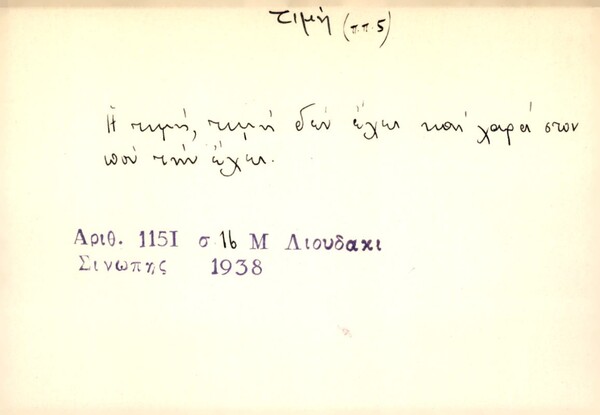 τιμή (π.π. 5)
Ἡ τιμή, τιμή δέν ἔχει καί χαρά στον
πού τήν ἔχει.
Αριθ. 1151 σ. 16 Μ Λιουδακι
Σινωπης 1938